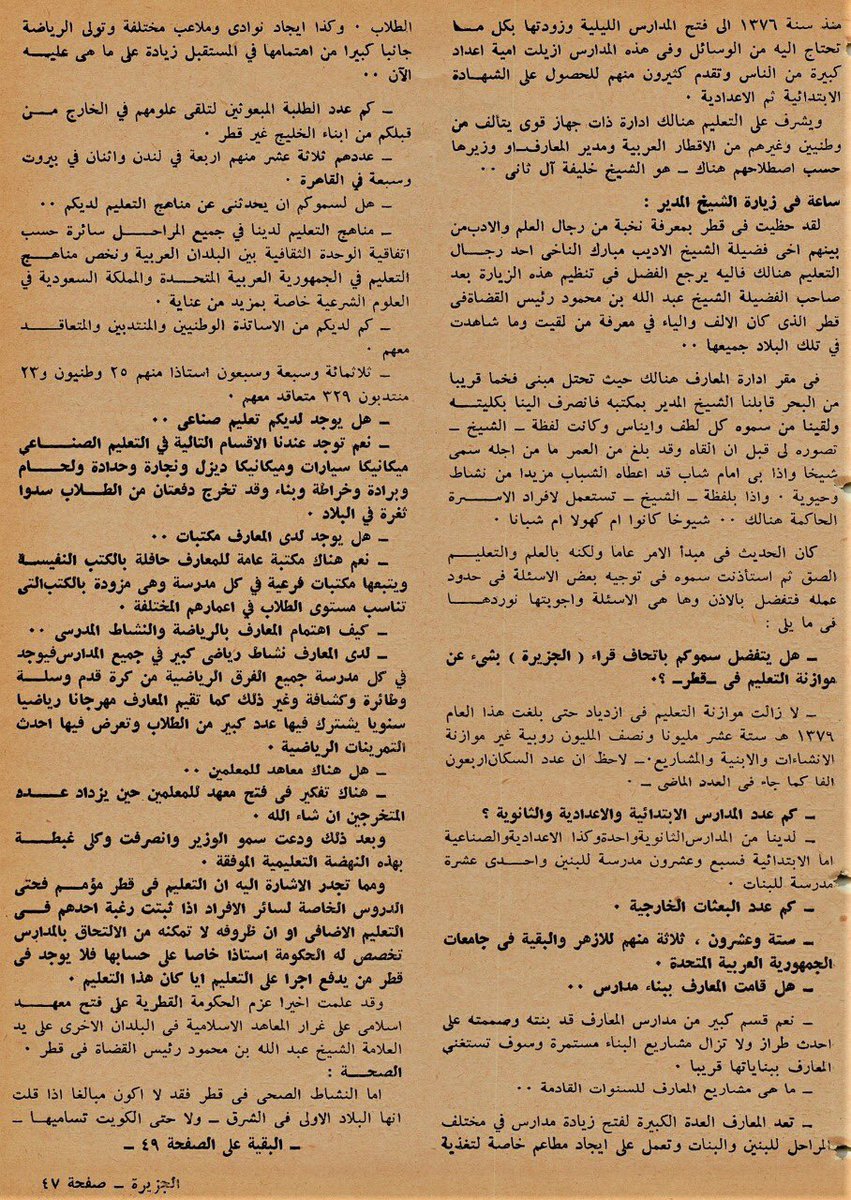 منذ سنة ١٣٧٦ الى فتح المدارس الليلية وزودتها بكل مــا
تحتاج اليه من الوسائل وفى هذه المدارس ازيلت امية اعداد
كبيرة من الناس وتقدم كثيرون منهم للحصول على الشهــادة
الابتدائية ثم الاعدادية ٠
ويشرف على التعليم هنالك ادارة ذات جهاز قوى يتألف من
وطنيين وغيرهم من الاقطار العربية ومدير المعارفــاو وزيرها
حسب اصطلاحهم هناك ــ هو الشيخ خليفة آل ثانى ٠٠
ساعة فى زيارة الشيخ المدير :
لقد حظيت فى قطر بمعرفة نخبة من رجال العلم والادبمن
بينهم اخى فضيلة الشيخ الاديب مبارك الناخى احد رجــال
التعليم هنالك فاليه يرجع الفضل فى تنظيم هذه الزيارة بعد
صاحب الفضيلة الشيخ عبد الله بن محمود رئيس القضاةفى
قطر الذى كان الالف والياء في معرفة من لقيت وما شاهدت
في تلك البلاد جميعها ٠٠
فى مقر ادارة المعارف هنالك حيث تحتل مبنى فخما قريبا
من البحر قابلنا الشيخ المدير بمكتبه فانصرف الينا بكليتــه
ولقينا من سموه كل لطف وايناس وكانت لفظة ــ الشيخ ــ
تصوره لى قبل ان القاه وقد بلغ من العمر ما من اجله سمى
شيخا واذا بى امام شاب قد اعطاه الشباب مزيدا من نشاط
وحيوية ٠ واذا بلفظة ــ الشيخ ــ تستعمل لافراد الاســرة
الحاكمة هنالك ٠٠ شيوخا كانوا ام كهولا ام شبانا ٠
كان الحديث فى مبدأ الامر عاما ولكنه بالعلم والتعليــم
الصق ثم استأذنت سموه فى توجيه بعض الاسئلة فى حدود
عمله فتفضل بالاذن وها هى الاسئلة واجوبتها نوردهــا
فى ما يلى :
ــ هل يتفضل سموكم باتحاف قراء ( الجزيرة ) بشىء عن
موازنة التعليم فى ــقطرــ ؟٠
ــ لا زالت موازنة التعليم فى ازدياد حتى بلغت هذا العام
١٣٧٩ هـ ستة عشر مليونا ونصف المليون روبية غير موازنة
الانشاءات والابنية والمشاريع٠ــ لاحظ ان عدد السكاناربعون
الفا كما جاء فى العدد الماضى ــ ٠
ــ كم عدد المدارس الابتدائية والاعدادية والثانوية ؟
ــ لدينا من المدارسالثانويةواحدةوكذا الاعداديةوالصناعية
اما الابتدائية فسبع وعشرون مدرسة للبنين واحــدى عشرة
مدرسة للبنات ٠
ــ كم عدد البعثات الخارجية ٠
ــ ستة وعشرون ، ثلاثة منهم للازهر والبقية فى جامعات
الجمهورية العربية المتحدة ٠
ــ هل قامت المعارف ببناء مدارس ٠٠
ــ نعم قسم كبير من مدارس المعارف قد بنته وصممته على
احدث طراز ولا تزال مشاريع البناء مستمرة وسوف تستغني
المعارف ببناياتها قريبا ٠
ــ ما هى مشاريع المعارف للسنوات القادمة ٠٠
ــ تعد المعارف العدة الكبيرة لفتح زيادة مدارس في مختلف
المراحل للبنين والبنات وتعمل على ايجاد مطاعم خاصة لتغذية
الطلاب ٠ وكذا ايجاد نوادى وملاعب مختلفة وتولى الرياضة
جانبا كبيرا من اهتمامها في المستقبل زيادة على ما هى عليــه
الآن ٠٠
ــ كم عدد الطلبة المبعوثين لتلقى علومهم في الخارج مــن
قبلكم من ابناء الخليج غير قطر ٠
ــ عددهم ثلاثة عشر منهم اربعة في لندن واثنان في بيروت
وسبعة في القاهرة ٠
ــ هل لسموكم ان يحدثنى عن مناهج التعليم لديكم ٠٠
ــ مناهج التعليم لدينا في جميع المراحــل سائرة حسب
اتفاقية الوحدة الثقافية بين البلدان العربية ونخص مناهــج
التعليم في الجمهورية العربية المتحــدة والمملكة السعودية في
العلوم الشرعية خاصة بمزيد من عناية ٠
ــ كم لديكم من الاساتذة الوطنيين والمنتدبين والمتعاقــد
معهم ٠
ــ ثلاثمائة وسبعة وسبعون استاذا منهم ٢٥ وطنيون و٢٣
منتدبون ٣٢٩ متعاقد معهم ٠
ــ هل يوجد لديكم تعليم صناعى ٠٠
ــ نعم توجد عندنا الاقسام التالية في التعليم الصنــاعي
ميكانيكا سيارات وميكانيكا ديزل ونجارة وحدادة ولحــام
وبرادة وخراطة وبناء وقد تخرج دفعتان من الطــلاب سدوا
ثغرة في البلاد ٠
ــ هل يوجد لدى المعارف مكتبات ٠٠
ــ نعم هناك مكتبة عامة للمعارف حافلة بالكتب النفيســة
ويتبعها مكتبات فرعية في كل مدرسة وهى مزودة بالكتبالتى
تناسب مستوى الطلاب في اعمارهم المختلفة ٠
ــ كيف اهتمام المعارف بالرياضة والنشاط المدرسى ٠٠
ــ لدى المعارف نشاط رياضى كبير في جميع المدارسفيوجد
في كل مدرسة جميع الفرق الرياضية من كرة قدم وسلــة
وطائرة وكشافة وغير ذلك كما تقيم المعارف مهرجانا رياضيا
سنويا يشترك فيها عدد كبير من الطلاب وتعرض فيها احدث
التمرينات الرياضية ٠
ــ هل هناك معاهد للمعلمين ٠٠
ــ هناك تفكير فى فتح معهد للمعلمين حين يزداد عــدد
المتخرجين ان شاء الله ٠
وبعد ذلك ودعت سمو الوزير وانصرفت وكلى غبطــة
بهذه النهضة التعليمية الموفقة ٠
ومما تجدر الاشارة اليه ان التعليم فى قطر مؤمــم فحتى
الدروس الخاصة لسائر الافراد اذا ثبتت رغبة احدهم فــى
التعليم الاضافى او ان ظروفه لا تمكنه من الالتحاق بالمدارس
تخصص له الحكومة استاذا خاصا على حسابها فلا يوجد فى
قطر من يدفع اجرا على التعليم ايا كان هذا التعليم ٠
وقد علمت اخيرا عزم الحكومة القطرية على فتح معهــد
اسلامى على غرار المعاهد الاسلامية فى البلدان الاخرى على يد
العلامة الشيخ عبد الله بن محمود رئيس القضاة فى قطر ٠
الصحــة :
اما النشاط الصحى فى قطر فقد لا اكون مبالغا اذا قلت
انها البلاد الاولى فى الشرق ــ ولا حتى الكويت تساميهــا ــ
ــ البقية على الصفحة ٤٩ ــ
الجزيرة ــ صفحة ٤٧